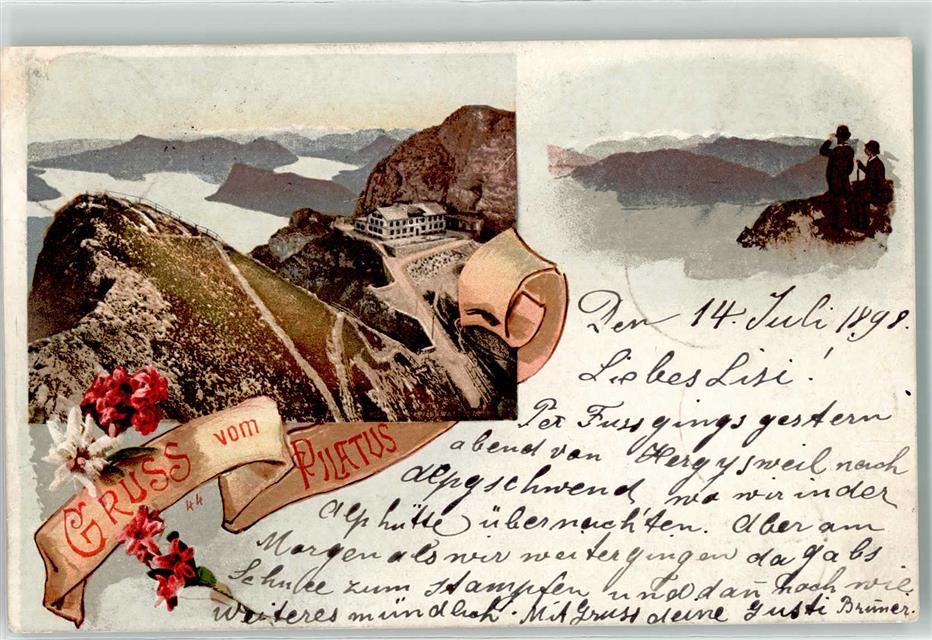 GRUSS vom PILATUS
44
Den 14. Juli 1898.
Liebes Lisi!
Per Fuss gings gestern
abend von Hergysweil nach
Alpgschwend, wo wir in der
Alphütte übernachten. Aber am
Morgen als wir weitergingen da gabs
Schnee zum stampfen und dan noch wie.
Weiteres mündlich. Mit Gruss deine Gusti Brunner.